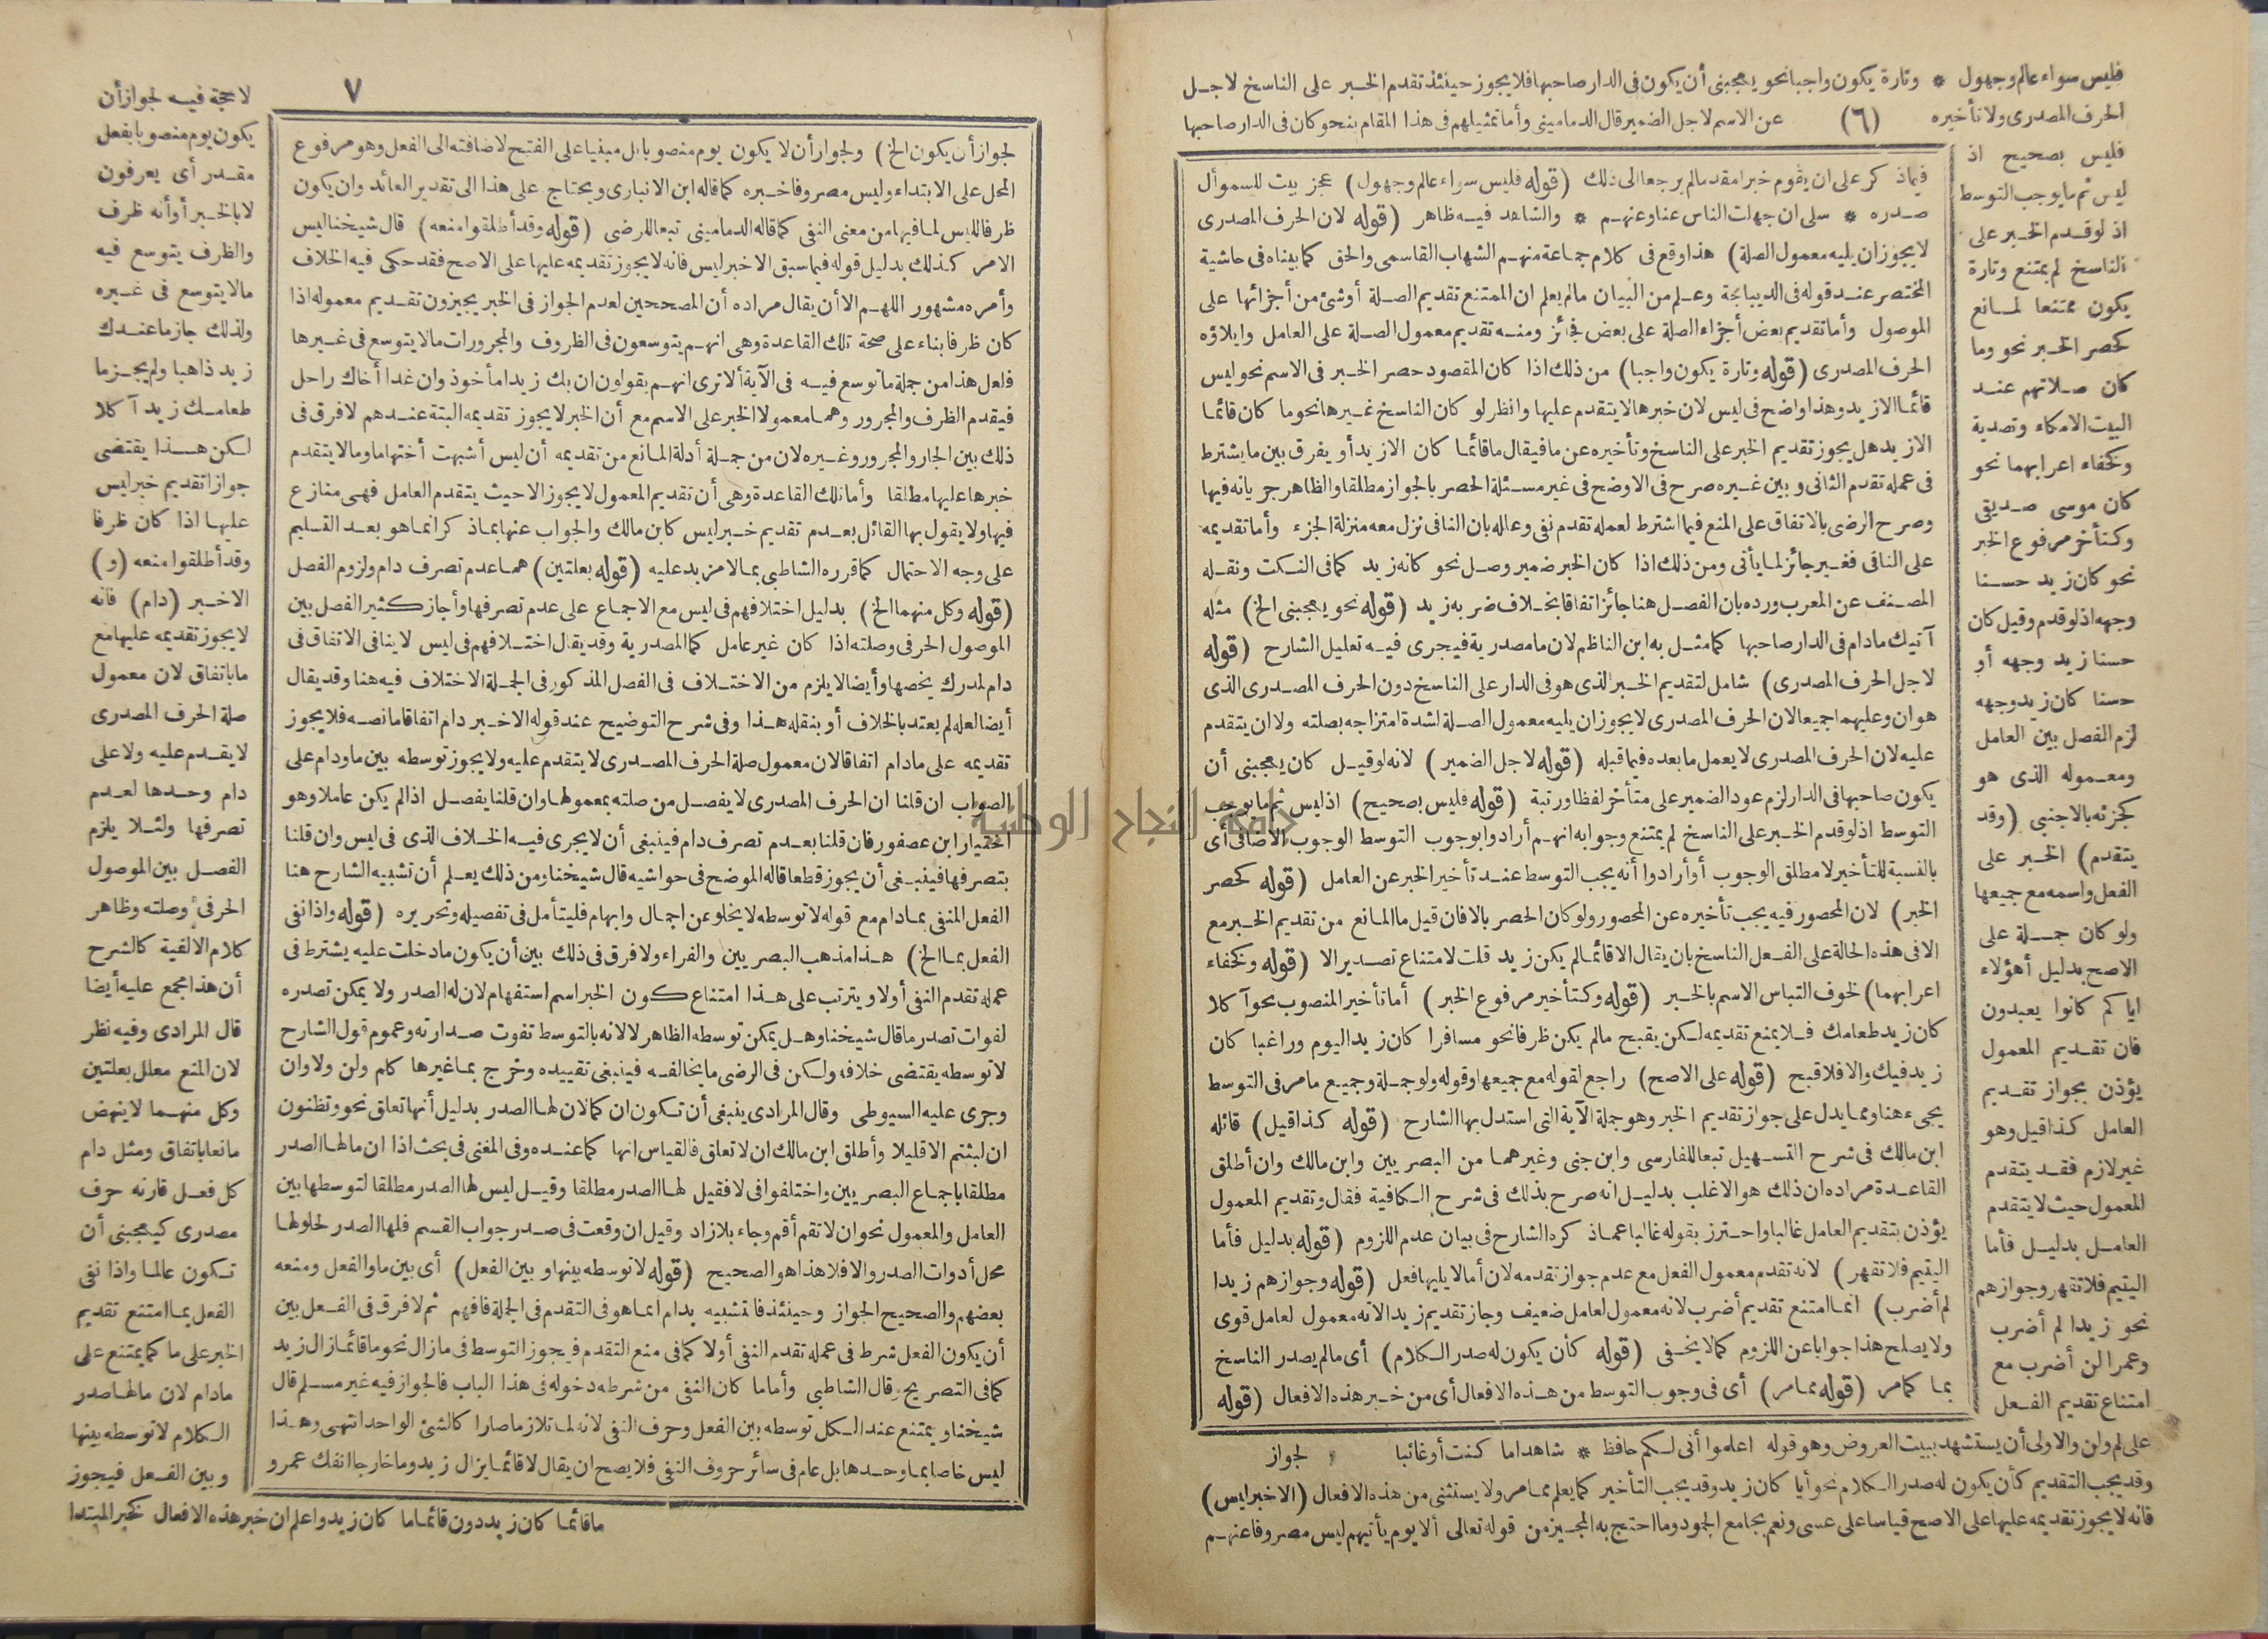 فليس سواء عالم وجهول * وتارة يكون واجبا نحو يعجبنى أن يكون فى الدار صاحبها فلا يجوز حينئذ تقدم الخبر على الناسخ لاجل
الحرف المصدرى ولا تأخيره (٦) عن الاسم لاجل الضمير قال الدمامينى وأما تمثيلهم فى هذا المقام بنحو كان فى الدار صاحبها
فليس بصحيح اذ
ليس ثم ما يوجب التوسط
اذ لو قدم الخبر على
الناسخ لم يمتنع وتارة
يكون ممتنعا لمانع
كحصر الخبر نحو وما
كان صلاتهم عند
البيت الا مكاء وتصدية
وكخفاء اعرابهما نحو
كان موسى صديقى
وكتأخر مرفوع الخبر
نحو كان زيد حسنا
وجهه اذ لو قدم وقيل كان
حسنا زيد وجهه أو
حسنا كان زيد وجهه
لزم الفصل بين العامل
ومعموله الذى هو
كجزئه بالاجنبى (وقد
يتقدم) الخبر على
الفعل واسمه مع جميعها
ولو كان جملة على
الاصح بدليل أهؤلاء
اياكم كانوا يعبدون
فان تقديم المعمول
يؤذن بجواز تقديم
العامل كذا قيل وهو
غير لازم فقد يتقدم
المعمول حيث لا يتقدم
العامل بدليل فأما
اليتيم فلا تقهر وجوازهم
نحو زيدا لم أضرب
وعمرا لن أضرب مع
امتناع تقديم الفعل
على لم ولن والاولى أن يستشهد ببيت العروض وهو قوله اعلموا أنى لكم حافظ * شاهدا ما كنت أو غائبا
وقد يجب التقديم كأن يكون له صدر الكلام نحو أيا كان زيد وقد يجب التأخير كما يعلم مما مر ولا يستثنى من هذه الافعال (الا خبر ليس)
فانه لا يجوز تقديمه عليها على الاصح قياسا على عسى ونعم بجامع الجمود وما احتج به المجيز من قوله تعالى ألا يوم يأتيهم ليس مصروفا عنهم
فيما ذكر على ان يقوم خبرا مقدما لم يرجعا الى ذلك (قوله فليس سواء عالم وجهول) عجز بيت للسموأل
صدره * سلى ان جهلت الناس عنا وعنهم * والشاهد فيه ظاهر (قوله لان الحرف المصدرى
لا يجوز ان يليه معمول الصلة) هذا وقع فى كلام جماعة منهم الشهاب القاسمى والحق كما بيناه فى حاشية
المختصر عند قوله فى الديباجة وعلم من البيان ما لم يعلم ان الممتنع تقديم الصلة أو شئ من أجزائها على
الموصول وأما تقديم بعض أجزاء الصلة على بعض فجائز ومنه تقديم معمول الصلة على العامل وايلاؤه
الحرف المصدرى (قوله وتارة يكون واجبا) من ذلك اذا كان المقصود حصر الخبر فى الاسم نحو ليس
قائما الا زيد وهذا واضح فى ليس لان خبرها لا يتقدم عليها وانظر لو كان الناسخ غيرها نحو ما كان قائما
الا زيد هل يجوز تقديم الخبر على الناسخ وتأخيره عن ما فيقال ما قائما كان الا زيد أو يفرق بين ما يشترط
فى عمله تقدم الثانى وبين غيره صرح فى الاوضح فى غير مسئلة الحصر بالجواز مطلقا والظاهر جريانه فيها
وصرح الرضى بالاتفاق على المنع فيما اشترط لعمله تقدم نفى وعلله بان النافى نزل معه منزلة الجزء وأما تقديمه
على النافى فغير جائز لما يأتى ومن ذلك اذا كان الخبر ضمير وصل نحو كانه زيد كما فى النكت ونقله
المصنف عن المعرب ورده بان الفصل هنا جائز اتفاقا بخلاف ضربه زيد (قوله نحو يعجبنى الخ) مثله
آتيك ما دام فى الدار صاحبها كما مثل به ابن الناظم لان ما مصدرية فيجرى فيه تعليل الشارح (قوله
لاجل الحرف المصدرى) شامل لتقديم الخبر الذى هو فى الدار على الناسخ دون الحرف المصدرى الذى
هو ان وعليهما جميعا لان الحرف المصدرى لا يجوز ان يليه معمول الصلة لشدة امتزاجه بصلته ولا ان يتقدم
عليه لان الحرف المصدرى لا يعمل ما بعده فيما قبله (قوله لاجل الضمير) لانه لو قيل كان يعجبنى أن
يكون صاحبها فى الدار لزم عود الضمير على متأخر لفظا ورتبة (قوله فليس بصحيح) اذ ليس ثم ما يوجب
التوسط اذ لو قدم الخبر على الناسخ لم يمتنع وجوابه انهم أرادوا بوجوب التوسط الوجوب الاضافى أى
بالنسبة للتأخير لا مطلق الوجوب أو أرادوا أنه يجب التوسط عند تأخير الخبر عن العامل (قوله كحصر
الخبر) لان المحصور فيه يجب تأخيره عن المحصور ولو كان الحصر بالا فان قيل ما المانع من تقديم الخبر مع
الا فى هذه الحالة على الفعل الناسخ بان يقال الا قائما لم يكن زيد قلت لامتناع تصدير الا (قوله وكخفاء
اعرابهما) لخوف التباس الاسم بالخبر (قوله وكتأخير مرفوع الخبر) أما تأخير المنصوب نحو آكلا
كان زيد طعامك فلا يمنع تقديمه لكن يقبح مالم يكن ظرفا نحو مسافرا كان زيد اليوم وراغبا كان
زيد فيك والا فلا قبح (قوله على الاصح) راجع لقوله مع جميعها وقوله ولو جملة وجميع ما مر فى التوسط
يجىء هنا ومما يدل على جواز تقديم الخبر وهو جملة الآية التى استدل بها الشارح (قوله كذا قيل) قائله
ابن مالك فى شرح التسهيل تبعا للفارسى وابن جنى وغيرهما من البصريين وابن مالك وان أطلق
القاعدة مراده ان ذلك هو الاغلب بدليل انه صرح بذلك فى شرح الكافية فقال وتقديم المعمول
يؤذن بتقديم العامل غالبا واحترز بقوله غالبا عما ذكره الشارح فى بيان عدم اللزوم (قوله بدليل فأما
اليتيم فلا تقهر) لانه تقدم معمول الفعل مع عدم جواز تقدمه لان أما لا يليها فعل (قوله وجوازهم زيدا
لم أضرب) انما امتنع تقديم أضرب لانه معمول لعامل ضعيف وجاز تقديم زيدا لانه معمول لعامل قوى
ولا يصلح هذا جوابا عن اللزوم كما لا يخفى (قوله كأن يكون له صدر الكلام) أى ما لم يصدر الناسخ
بما كما مر (قوله مما مر) أى فى وجوب التوسط من هذه الافعال أى من خبر هذه الافعال (قوله
لجواز
٧
لجواز أن يكون الخ) ولجواز أن لا يكون يوم منصوبا بل مبنيا على الفتح لاضافته الى الفعل وهو مرفوع
المحل على الابتداء وليس مصروفا خبره كما قاله ابن الانبارى ويحتاج على هذا الى تقدير العائد وان يكون
ظرفا لليس لما فيها من معنى النفى كما قاله الدمامينى تبعا للرضى (قوله وقد أطلقوا منعه) قال شيخنا ليس
الامر كذلك بدليل قوله فيما سبق الا خبر ليس فانه لا يجوز تقديمه عليها على الاصح فقد حكى فيه الخلاف
وأمره مشهور اللهم الا أن يقال مراده أن المصححين لعدم الجواز فى الخبر يجيزون تقديم معموله اذا
كان ظرفا بناء على صحة تلك القاعدة وهى انهم يتوسعون فى الظروف والمجرورات مالا يتوسع فى غيرها
فلعل هذا من جملة ما توسع فيه فى الآية ألا ترى انهم يقولون ان بك زيدا مأخوذ وان غدا أخاك راحل
فيقدم الظرف والمجرور وهما معمولا الخبر على الاسم مع أن الخبر لا يجوز تقديمه البتة عندهم لا فرق فى
ذلك بين الجار والمجرور وغيره لان من جملة أدلة المانع من تقديمه أن ليس أشبهت أختها ما وما لا يتقدم
خبرها عليها مطلقا وأما تلك القاعدة وهى أن تقديم المعمول لا يجوز الا حيث يتقدم العامل فهى منازع
فيها ولا يقول بها القائل بعدم تقديم خبر ليس كابن مالك والجواب عنها بما ذكر انما هو بعد التسليم
على وجه الاحتمال كما قرره الشاطبى بما لا مزيد عليه (قوله بعلتين) هما عدم تصرف دام ولزوم الفصل
(قوله وكل منهما الخ) بدليل اختلافهم فى ليس مع الاجماع على عدم تصرفها وأجاز كثير الفصل بين
الموصول الحرفى وصلته اذا كان غير عامل كما المصدرية وقد يقال اختلافهم فى ليس لا ينافى الاتفاق فى
دام لمدرك يخصها وأيضا لا يلزم من الاختلاف فى الفصل المذكور فى الجملة الاختلاف فيه هنا وقد يقال
أيضا لعله لم يعتد بالخلاف أو بنقله هذا وفى شرح التوضيح عند قوله الا خبر دام اتفاقا ما نصه فلا يجوز
تقديمه على ما دام اتفاقا لان معمول صلة الحرف المصدرى لا يتقدم عليه ولا يجوز توسطه بين ما ودام على
الصواب ان قلنا ان الحرف المصدرى لا يفصل من صلته بمعمولها وان قلنا يفصل اذا لم يكن عاملا وهو
اختيار ابن عصفور فان قلنا بعدم تصرف دام فينبغى أن لا يجرى فيه الخلاف الذى فى ليس وان قلنا
بتصرفها فينبغى أن يجوز قطعا قاله الموضح فى حواشيه قال شيخنا ومن ذلك يعلم أن تشبيه الشارح هنا
الفعل المنفى بما دام مع قوله لا توسطه لا يخلو عن اجمال وابهام فليتأمل فى تفصيله وتحريره (قوله واذا نفى
الفعل بما الخ) هذا مذهب البصريين والفراء ولا فرق فى ذلك بين أن يكون ما دخلت عليه يشترط فى
عمله تقدم النفى أو لا ويترتب على هذا امتناع كون الخبر اسم استفهام لان له الصدر ولا يمكن تصدره
لفوات تصدر ما قال شيخنا وهل يمكن توسطه الظاهر لا لانه بالتوسط تفوت صدارته وعموم قول الشارح
لا توسطه يقتضى خلافه ولكن فى الرضى ما يخالفه فينبغى تقييده وخرج بما غيرها كلم ولن ولا وان
وجرى عليه السيوطى وقال المرادى ينبغى أن تكون ان كما لان لها الصدر بدليل أنها تعلق نحو وتظنون
ان لبثتم الا قليلا وأطلق ابن مالك ان لا تعلق فالقياس انها كما عنده وفى المغنى فى بحث اذا ان ما لها الصدر
مطلقا باجماع البصريين واختلفوا فى لا فقيل لها الصدر مطلقا وقيل ليس لها الصدر مطلقا لتوسطها بين
العامل والمعمول نحو ان لا تقم أقم وجاء بلا زاد وقيل ان وقعت فى صدر جواب القسم فلها الصدر لحلولها
محل أدوات الصدر والا فلا هذا هو الصحيح (قوله لا توسطه بينها وبين الفعل) أى بين ما والفعل ومنعه
بعضهم والصحيح الجواز وحينئذ فالتشبيه بدام انما هو فى التقدم فى الجملة فافهم ثم لا فرق فى الفعل بين
أن يكون الفعل شرط فى عمله تقدم النفى أو لا كما فى منع التقدم فيجوز التوسط فى مازال نحو ما قائما زال زيد
كما فى التصريح وقال الشاطبى وأما ما كان النفى من شرطه دخوله فى هذا الباب فالجواز فيه غير مسلم قال
شيخنا ويمتنع عند الكل توسطه بين الفعل وحرف النفى لانه لما تلازما صارا كالشئ الواحد انتهى وهذا
ليس خاصا بما وحدها بل عام فى سائر حروف النفى فلا يصح ان يقال لا قائما يزال زيد وما خارجا انفك عمرو
لا حجة فيه لجواز أن
يكون يوم منصوبا بفعل
مقدر أى يعرفون
لا بالخبر أو أنه ظرف
والظرف يتوسع فيه
ما لا يتوسع فى غيره
ولذلك جاز ما عندك
زيد ذاهبا ولم يجز ما
طعامك زيد آكلا
لكن هذا يقتضى
جواز تقديم خبر ليس
عليها اذا كان ظرفا
وقد أطلقوا منعه (و)
الا خبر (دام) فانه
لا يجوز تقديمه عليها مع
ما باتفاق لان معمول
صلة الحرف المصدرى
لا يقدم عليه ولا على
دام وحدها لعدم
تصرفها ولئلا يلزم
الفصل بين الموصول
الحرفى وصلته وظاهر
كلام الالفية كالشرح
أن هذا مجمع عليه أيضا
قال المرادى وفيه نظر
لان المنع معلل بعلتين
وكل منهما لا ينهض
مانعا باتفاق ومثل دام
كل فعل قارنه حرف
مصدرى كيعجبنى أن
تكون عالما واذا نفى
الفعل بما امتنع تقديم
الخبر على ما كما يمتنع على
مادام لان ما لها صدر
الكلام لا توسطه بينها
وبين الفعل فيجوز
ما قائما كان زيد دون قائما ما كان زيد واعلم ان خبر هذه الافعال كخبر المبتدا
جامعة النجاح الوطنية